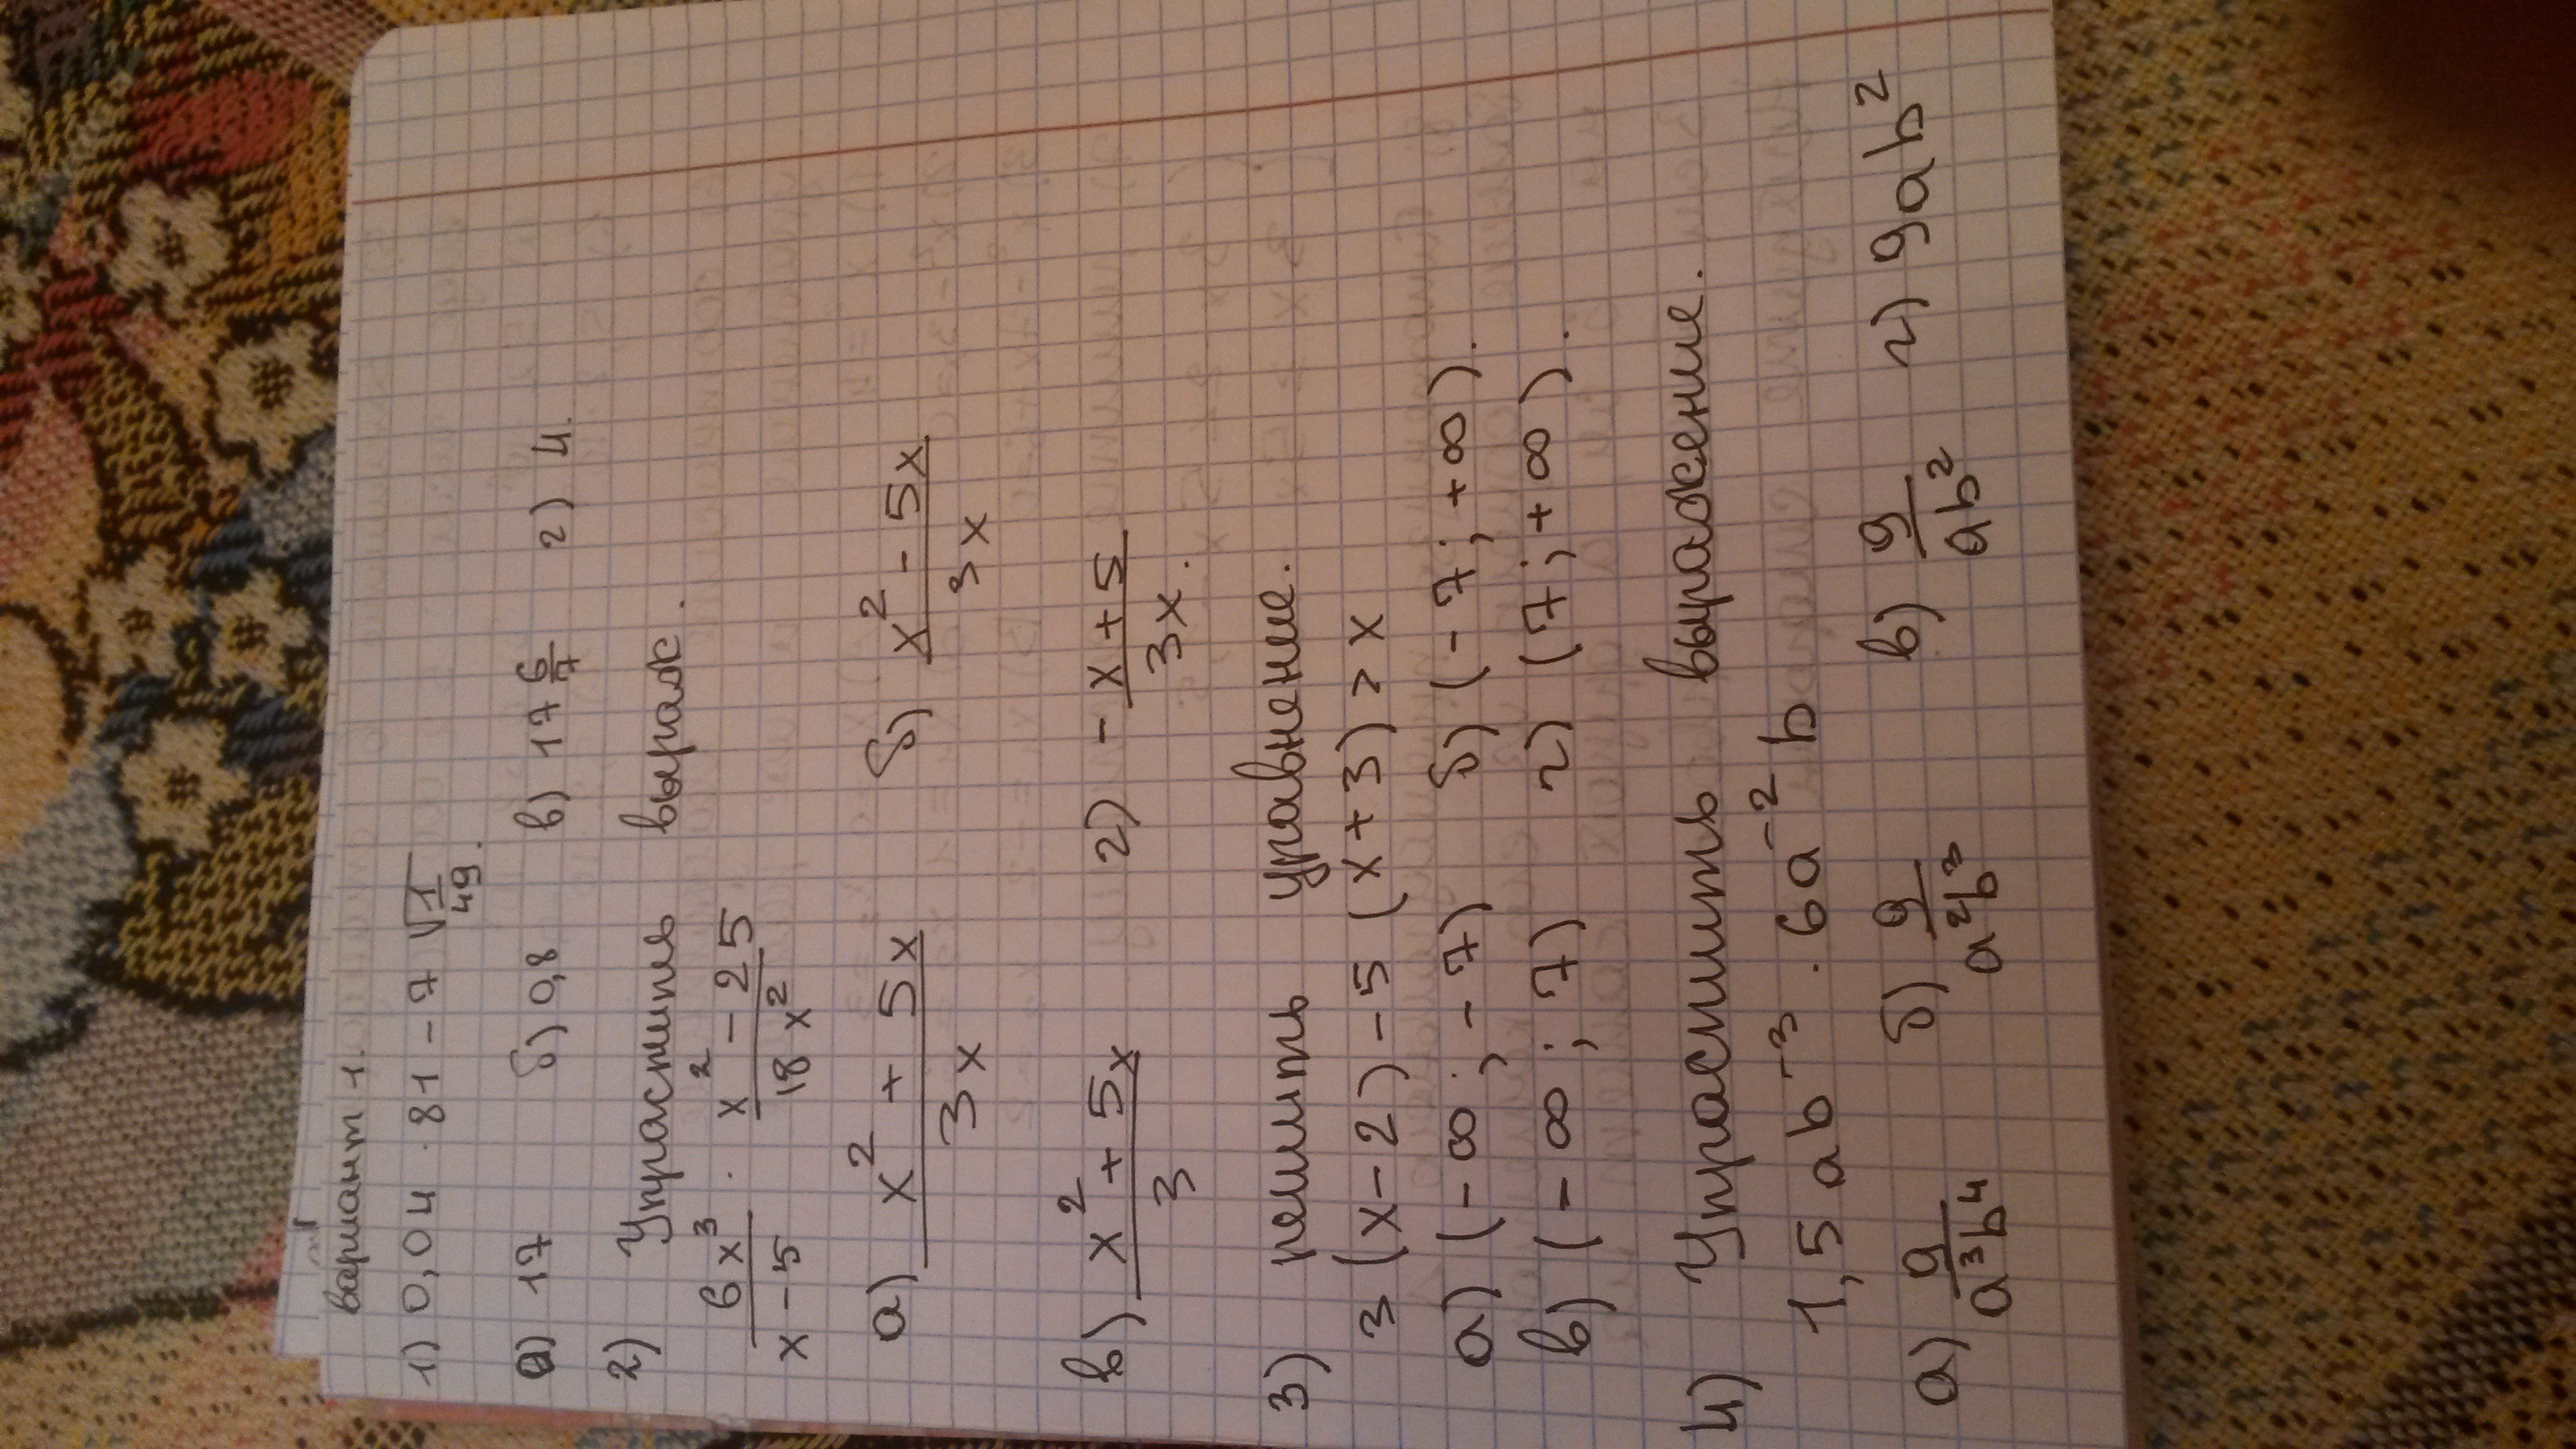 вариант 1.
1) 0,04 · 81 - 7 √1/49.
а) 17 б) 0,8 в) 17 6/7 г) 4.
2) Упростить выраж.
6x³/x-5 · x²-25/18x²
а) x²+5x/3x б) x²-5x/3x
в) x²+5x/3 г) -x+5/3x.
3) решить уравнение.
3(x-2)-5(x+3)>x
а) (-∞;-7) б) (-7;+∞).
в) (-∞;7) г) (7;+∞).
4) Упростить выражение.
1,5ab⁻³ · 6a⁻²b
а) 9/a³b⁴ б) 9/a²b³ в) 9/ab² г) 9ab²